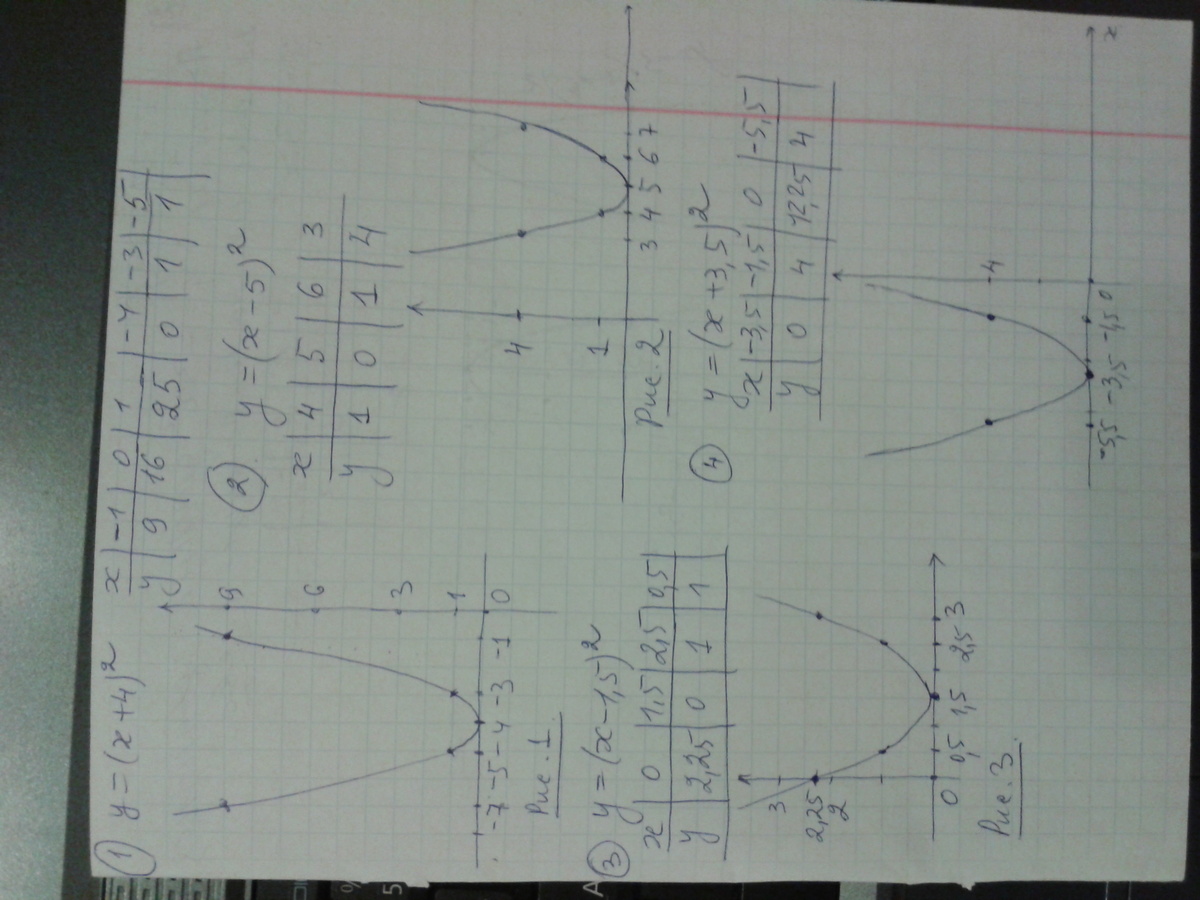 ① y=(x+4)²
x | -1 | 0 | 1 | -4 | -3 | -5
y | 9 | 16 | 25 | 0 | 1 | 1
9
6
3
1
-7 -5 -4 -3 -1 0
Рис. 1
② y=(x-5)²
x | 4 | 5 | 6 | 3
y | 1 | 0 | 1 | 4
4
1
3 4 5 6 7
Рис. 2
③ y=(x-1,5)²
x | 0 | 1,5 | 2,5 | 0,5
y | 2,25 | 0 | 1 | 1
3
2,25
2
0 0,5 1,5 2,5 3
Рис. 3.
④ y=(x+3,5)²
x | -3,5 | -1,5 | 0 | -5,5
y | 0 | 4 | 12,25 | 4
4
-5,5 -3,5 -1,5 0 x
%
5
A